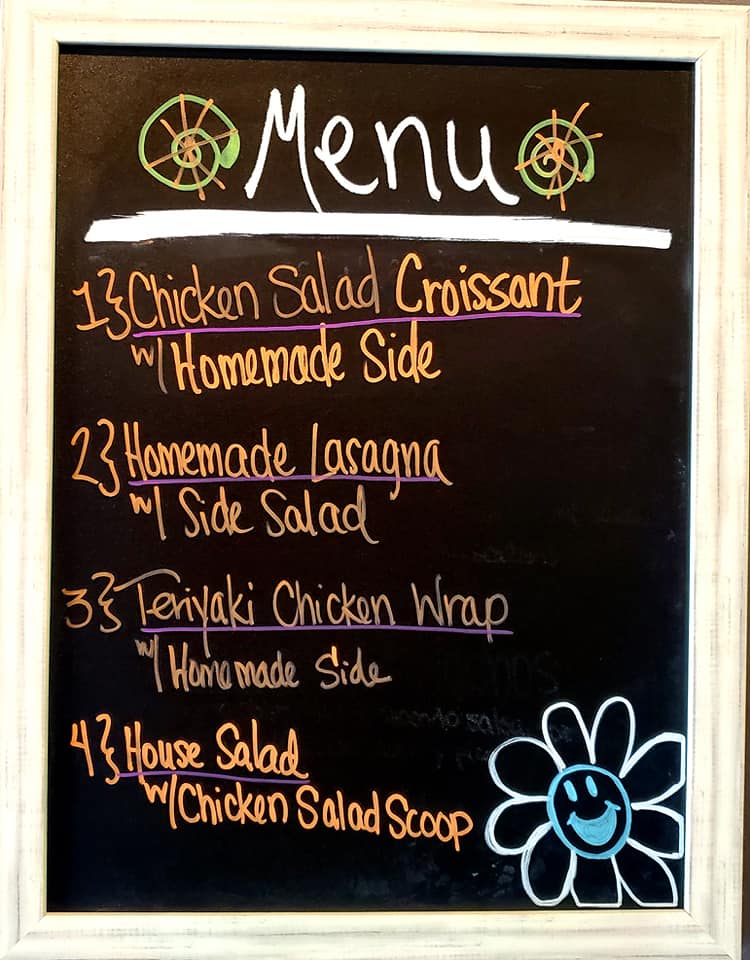 Menu
1} Chicken Salad Croissant
w/ Homemade Side
2} Homemade Lasagna
w/ Side Salad
3} Teriyaki Chicken Wrap
w/ Homemade Side
4} House Salad
w/ Chicken Salad Scoop